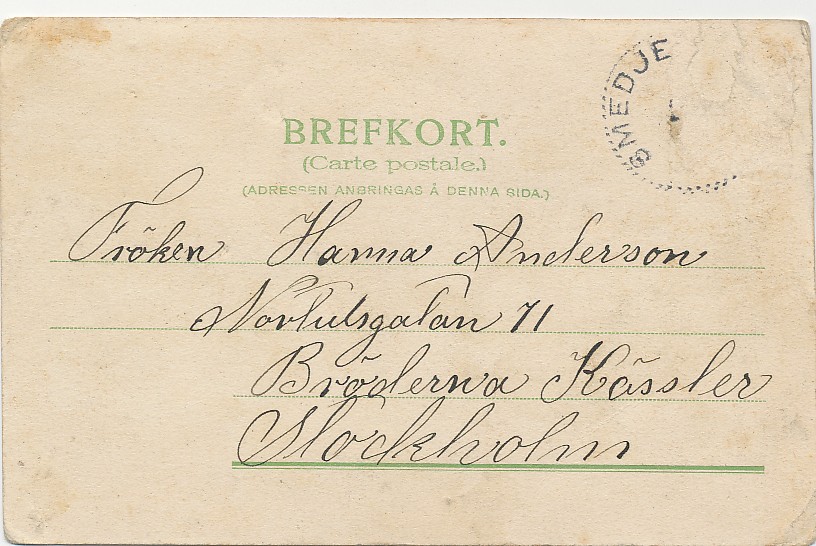 SMEDJE
BREFKORT.
(Carte postale.)
(ADRESSEN ANBRINGAS Å DENNA SIDA.)
Fröken Hanna Anderson
Nortulsgatan 71
Bröderna Kässler
Stockholm